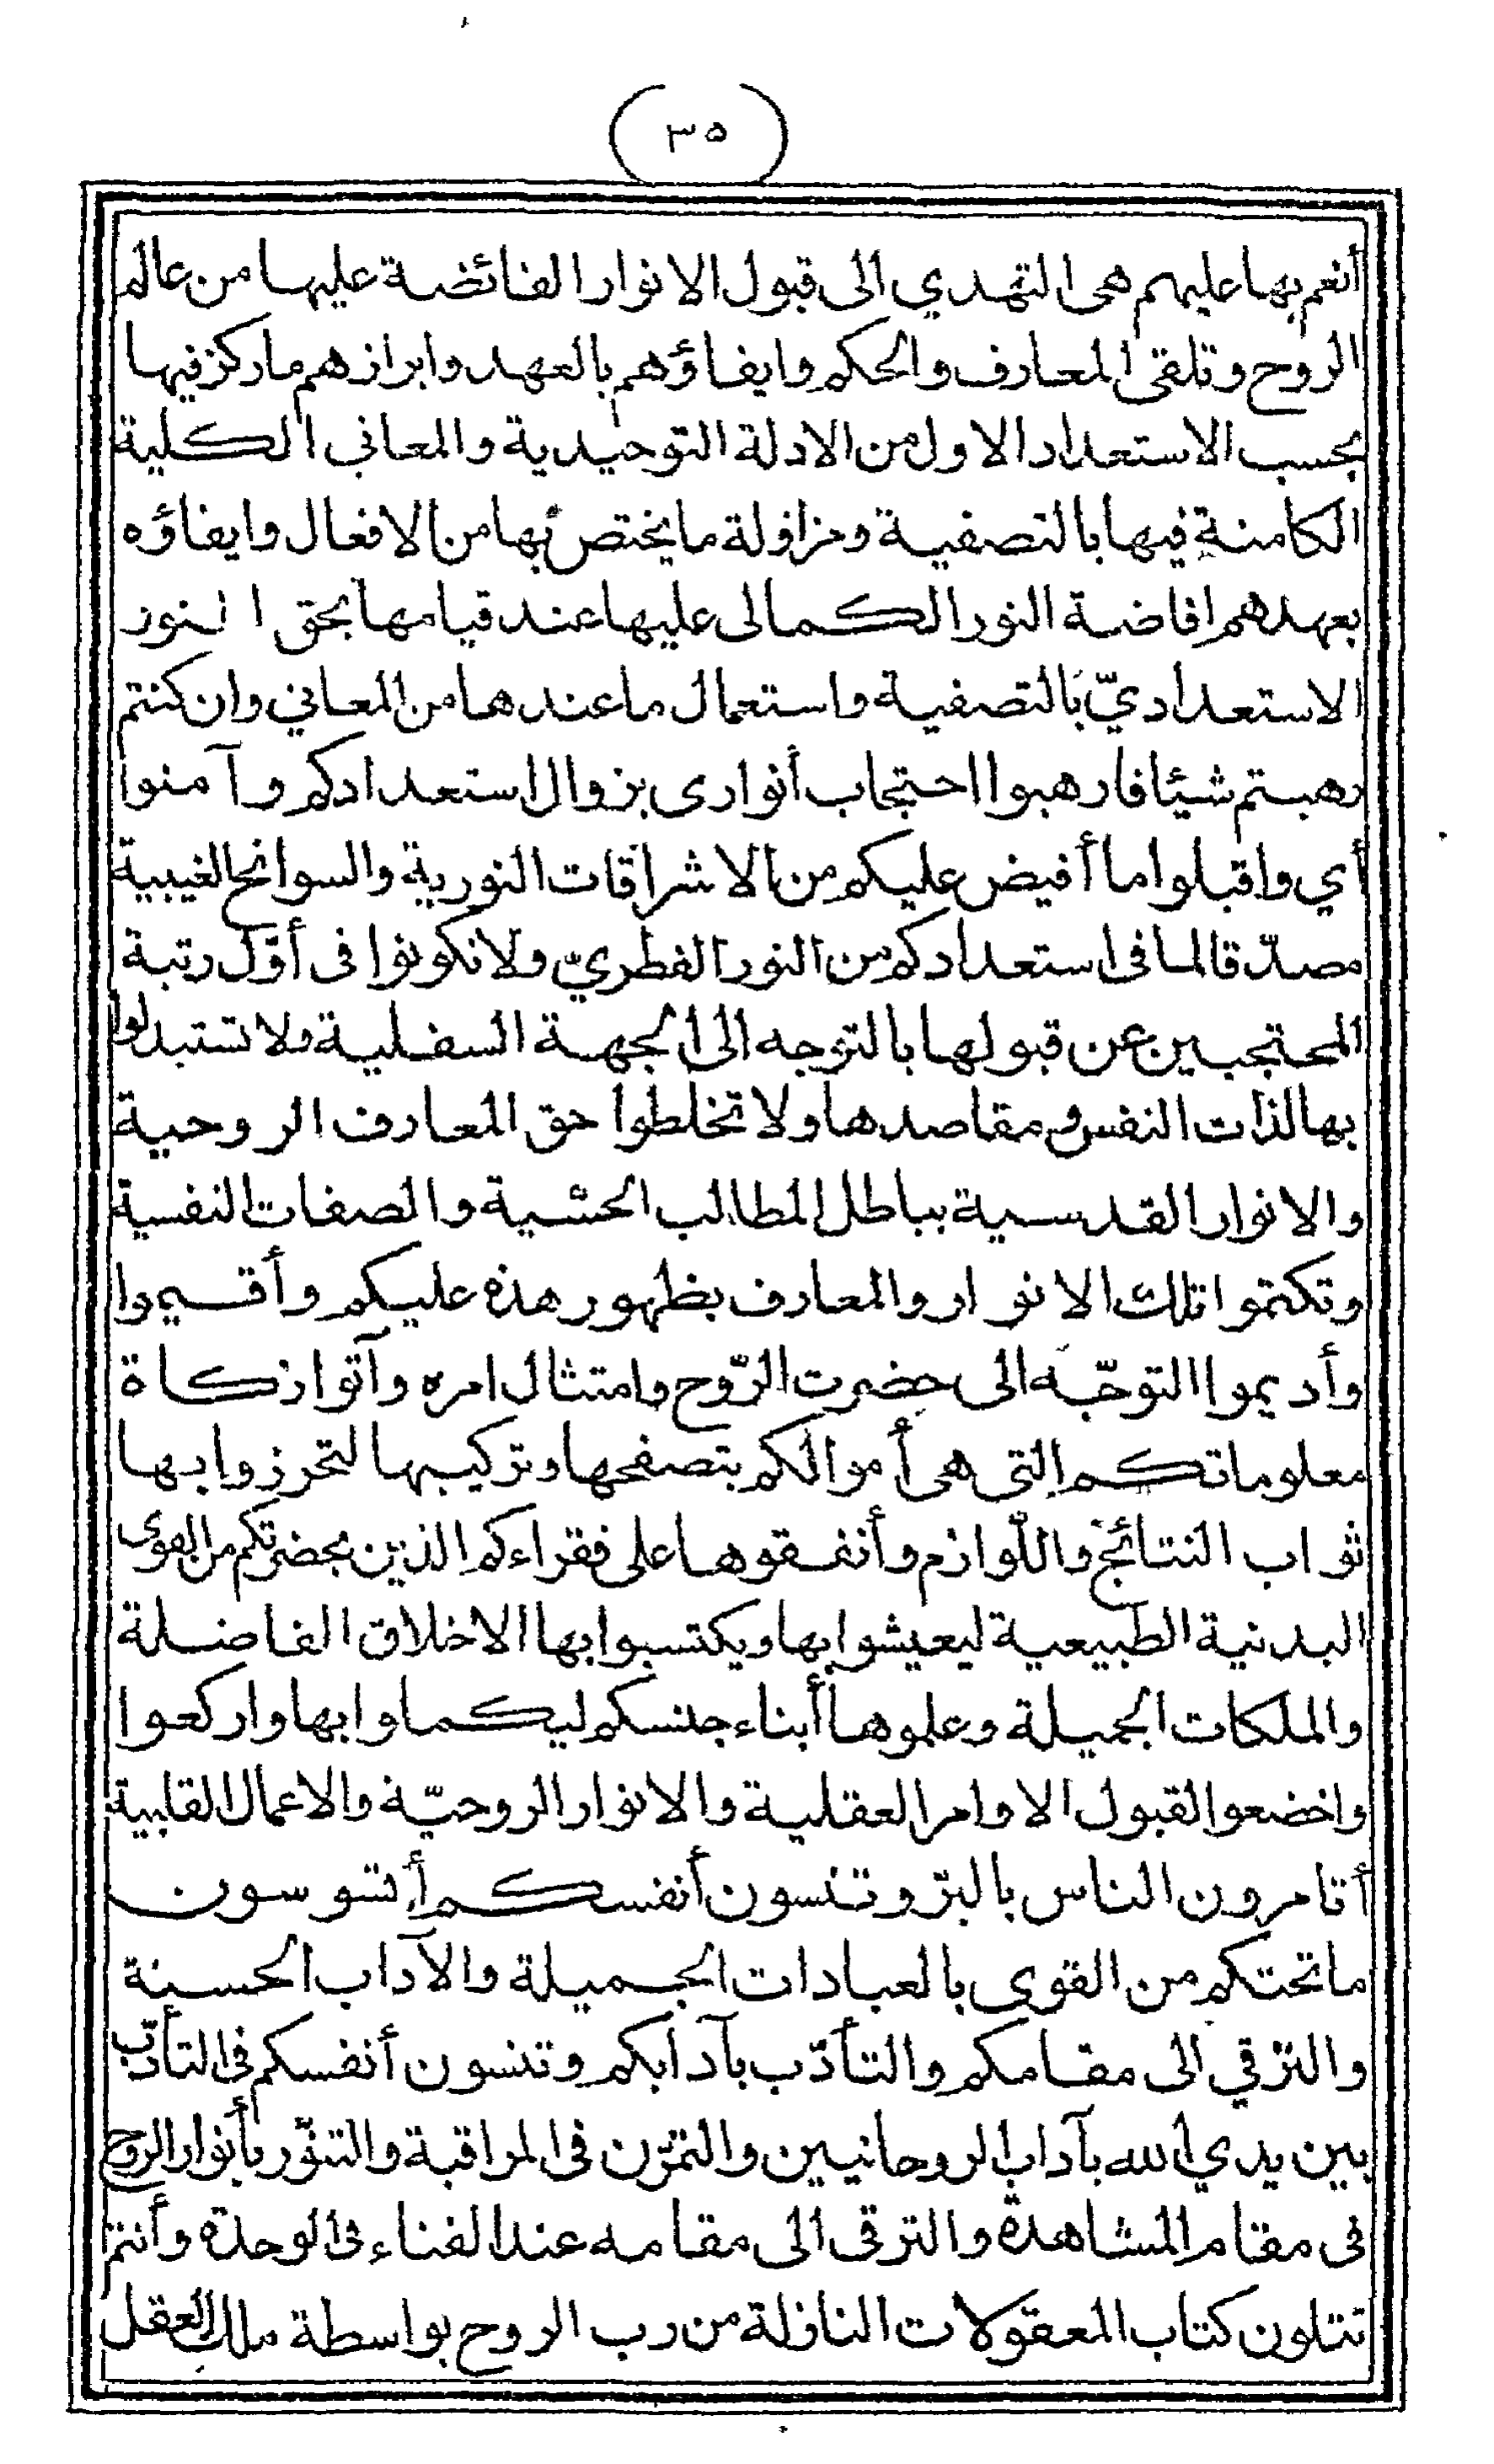 (٣٥)
أنعم بها عليهم هى التهدي الى قبول الانوار الفائضة عليها من عالم
الروح وتلقى المعارف والحكم وايفاؤهم بالعهد وابرازهم ما ركز فيها
بحسب الاستعداد الاول من الادلة التوحيدية والمعاني الكلية
الكامنة فيها بالتصفية ومزاولة ما يختص بها من الافعال وايفاؤه
بعهدهم افاضة النور الكمالى عليها عند قيامها بحق النور
الاستعداديّ بالتصفية واستعمال ما عندها من المعاني وان كنتم
رهبتم شيئا فارهبوا احتجاب أنوارى بزوال استعدادكم وآمنوا
أي واقبلوا ما أفيض عليكم من الاشراقات النورية والسوانح الغيبية
مصدّقا لما فى استعدادكم من النور الفطريّ ولا تكونوا فى أوّل رتبة
المحتجبين عن قبولها بالتوجه الى الجهة السفلية ولا تستبدلوا
بها لذات النفس ومقاصدها ولا تخلطوا حق المعارف الروحية
والانوار القدسية بباطل المطالب الحسّية والصفات النفسية
وتكتموا تلك الانوار والمعارف بظهور هذه عليكم وأقيموا
وأديموا التوجّه الى حضرت الرّوح وامتثال امره وآتوا زكاة
معلوماتكم التى هى أموالكم بتصفحها وتركيبها لتحرزوا بها
ثواب النتائج واللّوازم وأنفقوها على فقراءكم الذين بحضرتكم من القوى
البدنية الطبيعية ليعيشوا بها ويكتسبوا بها الاخلاق الفاضلة
والملكات الجميلة وعلموها أبناء جنسكم ليكملوا بها واركعوا
واخضعوا لقبول الاوامر العقلية والانوار الروحيّة والاعمال القلبية
أتامرون الناس بالبرّ وتنسون أنفسكم أتسوسون
ما تحتكم من القوى بالعبادات الجميلة والآداب الحسنة
والترقي الى مقامكم والتأدّب بآدابكم وتنسون أنفسكم فى التأدّب
بين يدي الله بآداب الروحانيين والتمرّن فى المراقبة والتنوّر بأنوار الروح
فى مقام المشاهدة والترقى الى مقامه عند الفناء فى الوحدة وأنتم
تتلون كتاب المعقولات النازلة من رب الروح بواسطة ملك العقل